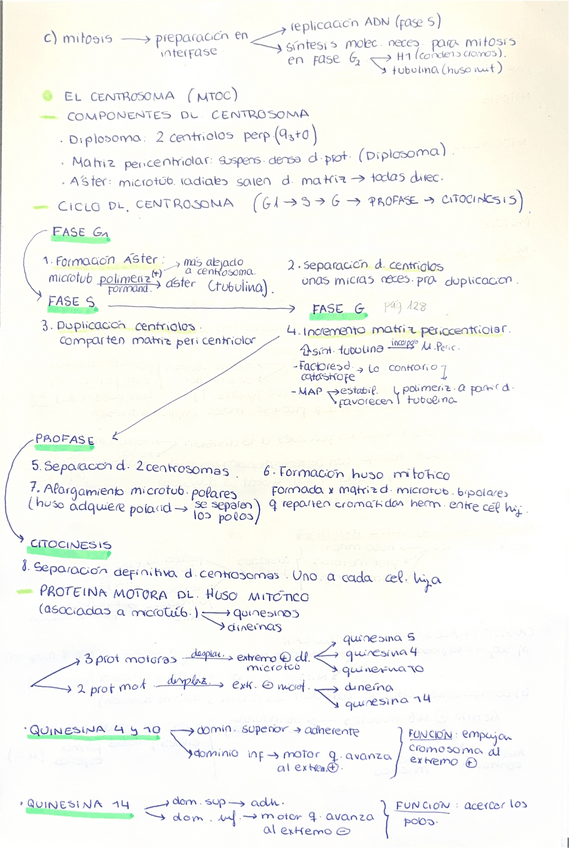 c) mitosis → preparación en interfase → replicación ADN (fase S)
→ síntesis molec. neces para mitosis en fase G2 → H1 (condens cromos).
→ tubulina (huso mit)
EL CENTROSOMA (MTOC)
– COMPONENTES DL. CENTROSOMA
· Diplosoma: 2 centriolos perp (93+0)
· Matriz pericentriolar: suspens. densa d. prot. (Diplosoma).
· Aster: microtub. radiales salen d. matriz → todas direc.
– CICLO DL. CENTROSOMA (G1 → S → G → PROFASE → CITOCINESIS)
FASE G1
1. Formación Áster: → más alejado a centrosoma
microtub polimeriz (+) formand. → áster (tubulina).
2. Separación d. centriolos
unas micras neces. pra duplicacion.
FASE S
3. Duplicación centriolos.
comparten matriz pericentriolar
FASE G pág 128
4. Incremento matriz periocentriolar.
⇧ sint. tubulina incorpora → M. Peric.
- Factores d catástrofe → Lo contrario
- MAP → estabil. favorecen polimeriz. a partir d. tubulina
PROFASE
5. Separacion d. 2 centrosomas
6. Formación huso mitótico
formada x matriz d. microtub. bipolares
q reparten cromatidas herm. entre cél hij.
7. Alargamiento microtub. polares
(huso adquiere polarid → se separan los polos)
CITOCINESIS
8. Separación definitiva d. centrosomas. Uno a cada cel. hija
– PROTEINA MOTORA DL. HUSO MITÓTICO
(asociadas a microtúb.) → quinesinas
→ dineinas
→ 3 prot motoras desplaz. → extremo ⊕ dl. microtub → quinesina 5
→ quinesina 4
→ quinesina 10
→ 2 prot mot desplaz. → extr. ⊖ → dineina
→ quinesina 14
· QUINESINA 4 y 10 → domin. superior → adherente
→ dominio inf → motor q. avanza al extrem ⊕.
FUNCIÓN: empujan cromosoma al extremo ⊕
· QUINESINA 14 → dom. sup → adh.
→ dom. inf. → motor q. avanza al extremo ⊖
FUNCIÓN: acercar los polos.